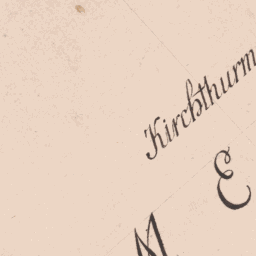 Kirchthurm
M E